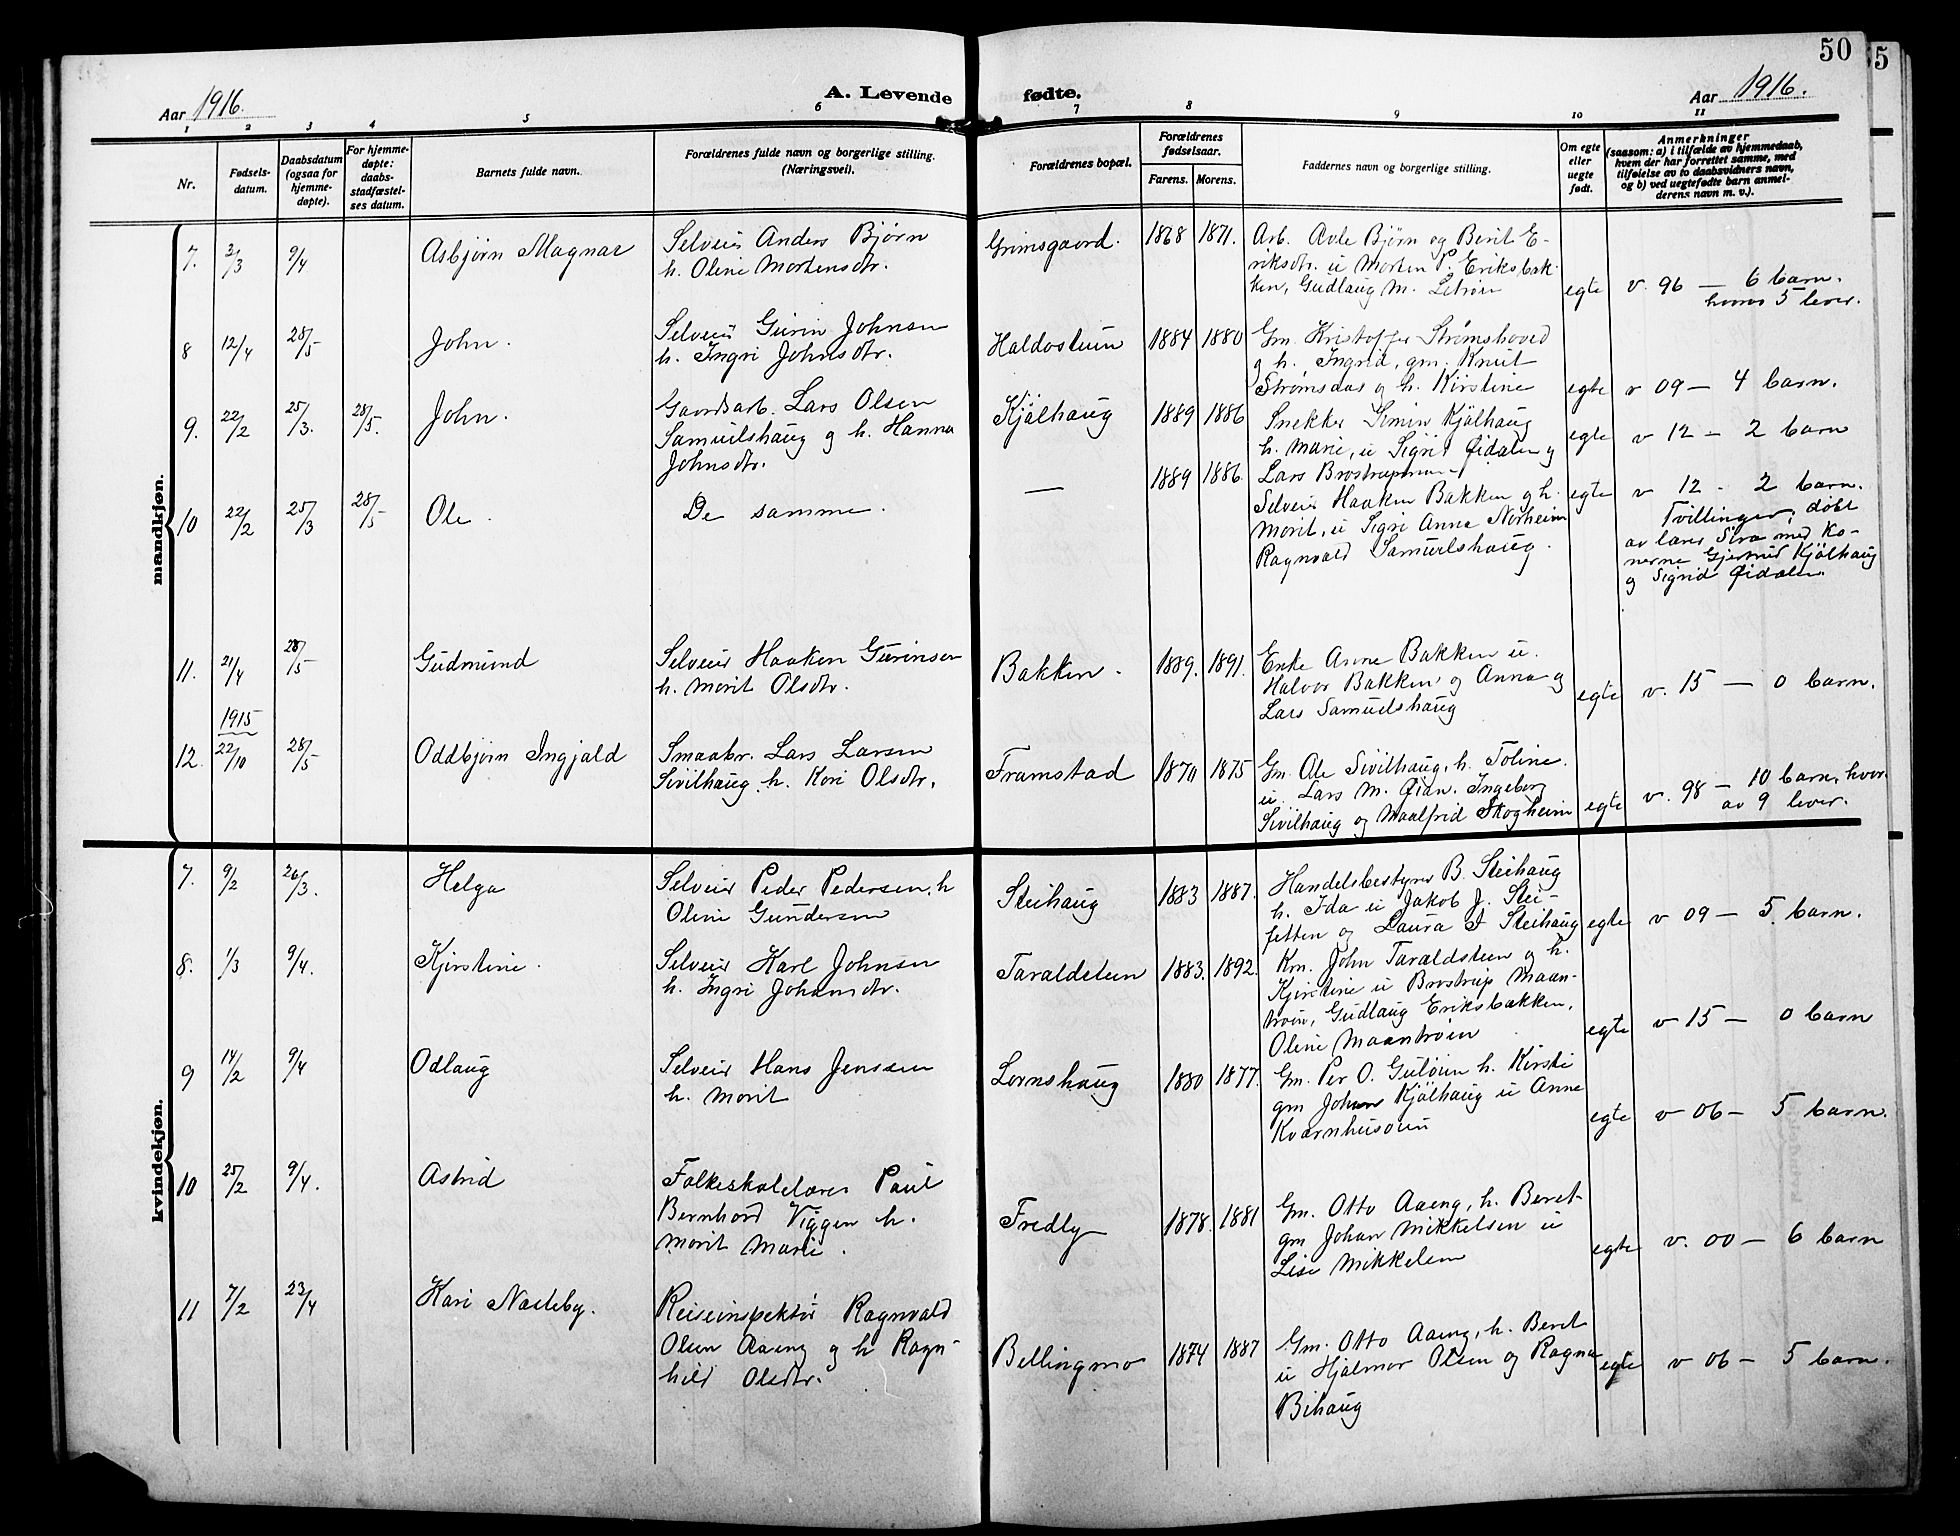 50
55
Aar 1916.
A. Levende fødte.
Aar 1916.
1 2 3 4 5 6 7 8 9 10 11
Nr.
Fødsels-
datum.
Daabsdatum
(ogsaa for
hjemme-
døpte).
For hjemme-
døpte:
daabs-
stadfæstel-
ses datum.
Barnets fulde navn.
Forældrenes fulde navn og borgerlige stilling.
(Næringsvei).
Forældrenes bopæl.
Forældrenes
fødselsaar.
Farens. Morens.
Faddernes navn og borgerlige stilling.
Om egte
eller
uegte
født.
Anmerkninger
(saasom: a) i tilfælde av hjemmedaab,
hvem der har forrettet samme, med
tilføielse av to daabsvidners navn,
og b) ved uegtefødte barn anmel-
derens navn m. v.).
mandkjøn.
7. 3/3 9/4 Asbjørn Magnar
Selveier Anders Bjørn
h. Oline Mortensdtr.
Grimsgaard. 1868 1871.
Arb. Avle Bjørn og Berit E-
riksdtr. u Morten P. Eriksbak-
ken, Gudlaug M.
egte v. 96 — 6 barn.
hvorav 5 lever.
8 12/4 28/5 John.
Selveier Gurin Johnsen
h. Ingri Johnsdtr.
Haldosteun 1884 1880
Gm. Kristoffer Strømshoved
og h. Ingrid, gm. Knut
Strømsaas og h. Kirstine
egte v 09 — 4 barn.
9. 22/2 25/3. 28/5. John.
Gaardsarb. Lars Olsen
Samuelshaug og h. Hanna
Johnsdtr.
Kjølhaug 1889 1886
Snekker Simen Kjølhaug
h. Marie, u Sigrid Øidalen og
Lars
egte v 12 — 2 barn
10 22/2 25/3 28/5 Ole.
De samme.
— 1889 1886.
Selveier Haaken Bakken og h.
Marit, u Sigri Anne Norheim
Ragnvald Samuelshaug.
egte v 12 - 2 barn.
Tvillinger, døbt
av lærer med Ko-
nerne Gjertrud Kjølhaug
og Sigrid Øidalen.
11. 21/4 28/5 Gudmund
Selveier Haaken Gurinsen
h. Marit Olsdtr.
Bakken. 1889. 1891.
Enke Anne Bakken u.
Halvor Bakken og Anna og
Lars Samuelshaug
egte v. 15 — 0 barn.
1915
12. 22/10 28/5 Oddbjørn Ingjald
Smaabr. Lars Larsen
Sivilhaug. h. Kari Olsdtr.
Framstad 1870 1875
Gm. Ole Sivilhaug, h. Toline.
u. Lars M. Øian. Ingeborg
Sivilhaug og Maalfrid Skogheim
egte v. 98 — 10 barn, hvor
av 9 lever.
kvindekjøn.
7. 9/2 26/3. Helga
Selveier Peder Pedersen, h
Oline Gundersen
Steihaug 1883 1887.
Handelsbestyrer B. Steihaug
h. Ida u Jakob J. Stei-
fetten og Laura J Steihaug
egte v 09 — 5 barn.
8. 1/3 9/4. Kjirstine.
Selveier Karl Johnsen
h. Ingri Johansdtr.
Taraldsteen 1883. 1892.
Km. John Taraldsteen og h.
Kjirstine u Brostrup Maan-
trøen, Gudlaug Eriksbakken,
Oline Maantrøen
egte v 15 — 0 barn
9 14/2 9/4 Odlaug
Selveier Hans Jenssen
h. Marit
Lornshaug 1880 1877.
Gm. Per O. Guløien h. Kirsti
gm Johan Kjølhaug u Anne
Kvarnhusøien
egte v 06 — 5 barn.
10 25/2 9/4. Astrid
Folkeskolelærer Paul
Bernhard Viggen h.
Marit Marie.
Fredly 1878. 1881
Gm. Otto Aaeng, h. Beret
gm Johan Mikkelsen u
Lise Mikkelsen
egte v. 00 — 6 barn
11 7/2 23/4 Kari Nasteby.
Reiseinspektør Ragnvald
Olsen Aaeng og h Ragn-
hild Olsdtr.
Bellingmo 1874 1887
Gm. Otto Aaeng, h. Beret
u Hjalmar Olsen og Ragna
Bihaug
egte v 06 — 5 barn.